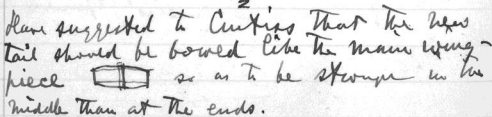 2
Have suggested to Curtiss that the new
tail should be bowed like the main wing-
piece so as to be stronger in the
middle than at the ends.